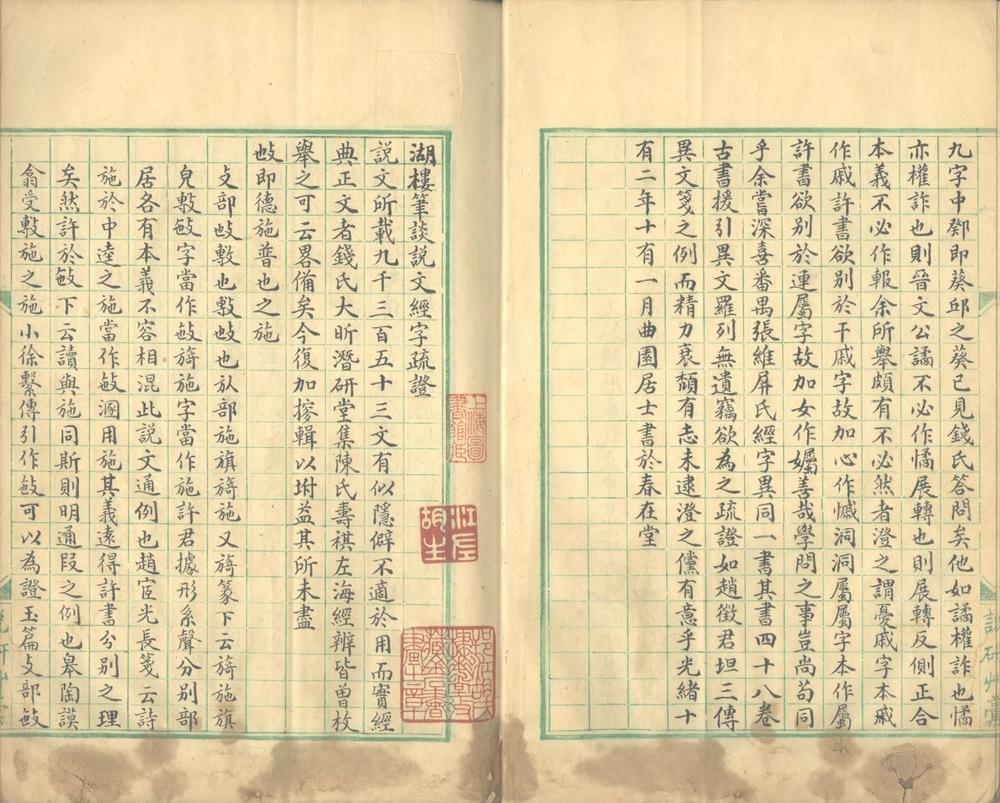 九字中鄈即葵邱之葵已見錢氏答問矣他如譎權詐也憰
亦權詐也則晉文公譎不必作憰展轉也則展轉反側正合
本義不必作報余所舉頗有不必然者澄之謂憂戚字本戚
作戚許書欲別於干戚字故加心作慽洞洞屬屬字本作屬
許書欲別於連屬字故加女作孎善哉學問之事豈尚苟同
乎余嘗深喜番禺張維屏氏經字異同一書其書四十八卷
古書援引異文羅列無遺竊欲為之疏證如趙徵君坦三傳
異文箋之例而精力衰頹有志未逮澄之儻有意乎光緒十
有二年十有一月曲園居士書於春在堂
湖樓筆談說文經字疏證
說文所載九千三百五十三文有似隱僻不適於用而實經
典正文者錢氏大昕潛研堂集陳氏壽祺左海經辨皆曾枚
舉之可云畧備矣今復加搜輯以坿益其所未盡
𢻱即德施普也之施
攴部𢻱敷也敷𢻱也㫃部施旗旖施又旖篆下云旖施旗
皃敷𢻱字當作𢻱旖施字當作施許君據形系聲分別部
居各有本義不容相混此說文通例也趙宧光長箋云詩
施於中逵之施當作𢻱溷用施其義遠得許書分別之理
矣然許於𢻱下云讀與施同斯則明通叚之例也皋陶謨
翕受敷施之施小徐繫傳引作𢻱可以為證玉篇攴部𢻱
江左胡生